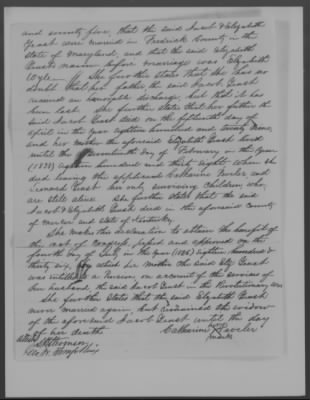 and seventy five, that the said Jacob & Elizabeth
Gaust were married in Frederick County in the
State of Maryland, and that the said Elizabeth
Gaust's name before marriage was Elizabeth
She further states that she has no
doubt that her father the said Jacob Gaust
received an honorable discharge, but that it has
been lost. She further states that her father the
said Jacob Gaust died on the fifteenth day of
April in the year eighteen hundred and twenty nine,
and her mother the aforesaid Elizabeth Gaust lived
until the day of February in the year
(1838) eighteen hundred and thirty eight when she
died leaving the applicant Catharine and
Leonard Gaust her only surviving children who
are still alive. She further states that the said
Jacob & Elizabeth Gaust died in the aforesaid County
of Mercer and State of Kentucky.
She makes this declaration to obtain the benefit of
the act of Congress, passed and approved on the
fourth day of July in the year (1836) eighteen hundred &
thirty six, by which her mother the said Eliz Gaust
was entitled to a Pension on account of the services of
her husband, the said Jacob Gaust in the Revolutionary war
She further states that the said Elizabeth Gaust
never married again, but remained the widow
of the aforesaid Jacob Gaust until the day
of her death
Catharine X
mark
Attest